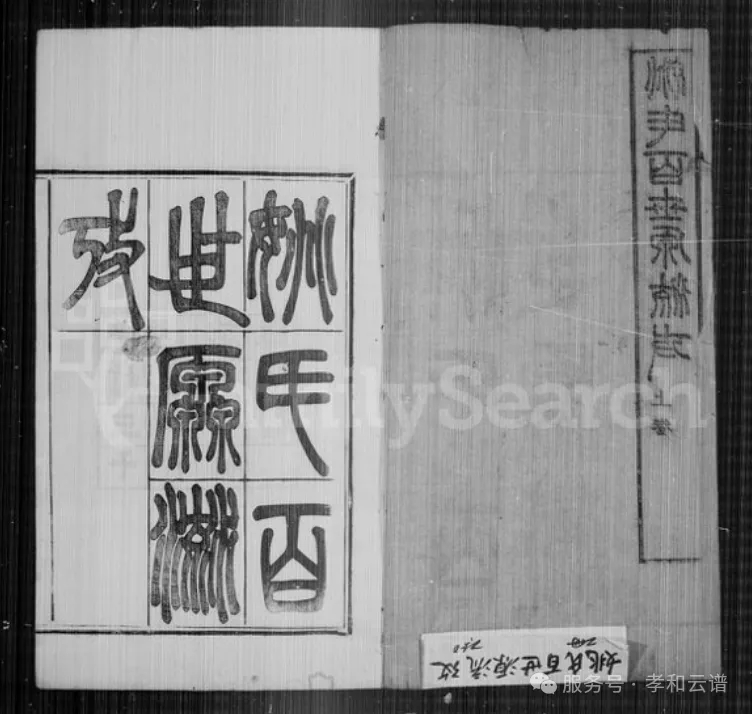 姚氏百世源流考 上卷
姚氏百
世厵流
攷
FamilySearch
姚氏百世源流攷
2冊
服务号 · 孝和云谱